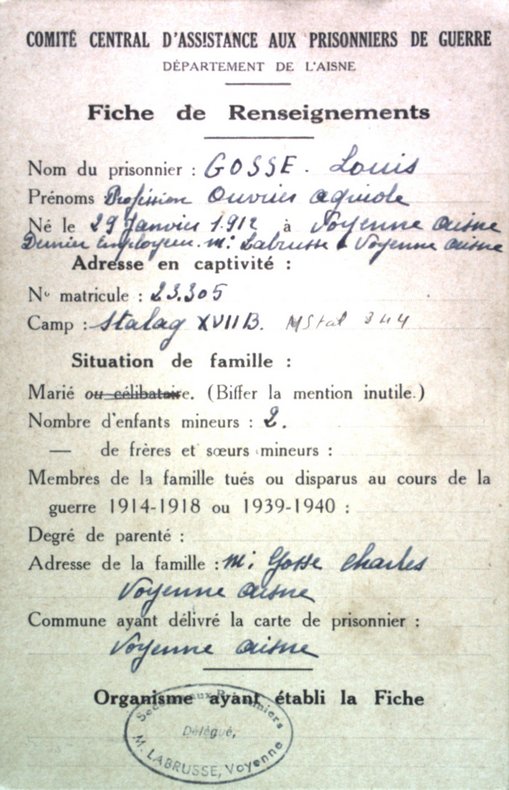 COMITÉ CENTRAL D'ASSISTANCE AUX PRISONNIERS DE GUERRE
DÉPARTEMENT DE L'AISNE
Fiche de Renseignements
Nom du prisonnier : GOSSE. Louis
Prénoms Profession Ouvrier agricole
Né le 29 Janvier 1912 à Voyenne aisne
Dernier employeur. Mr Labrusse à Voyenne aisne
Adresse en captivité :
No matricule : 23.305
Camp : Stalag XVII B. M Stal 344
Situation de famille :
Marié ou célibataire. (Biffer la mention inutile.)
Nombre d'enfants mineurs : 2.
— de frères et sœurs mineurs :
Membres de la famille tués ou disparus au cours de la
guerre 1914-1918 ou 1939-1940 :
Degré de parenté :
Adresse de la famille : Mr Gosse Charles
Voyenne aisne
Commune ayant délivré la carte de prisonnier :
Voyenne aisne
Organisme ayant établi la Fiche
aux Prisonniers
Délégué,
M. LABRUSSE, Voyenne